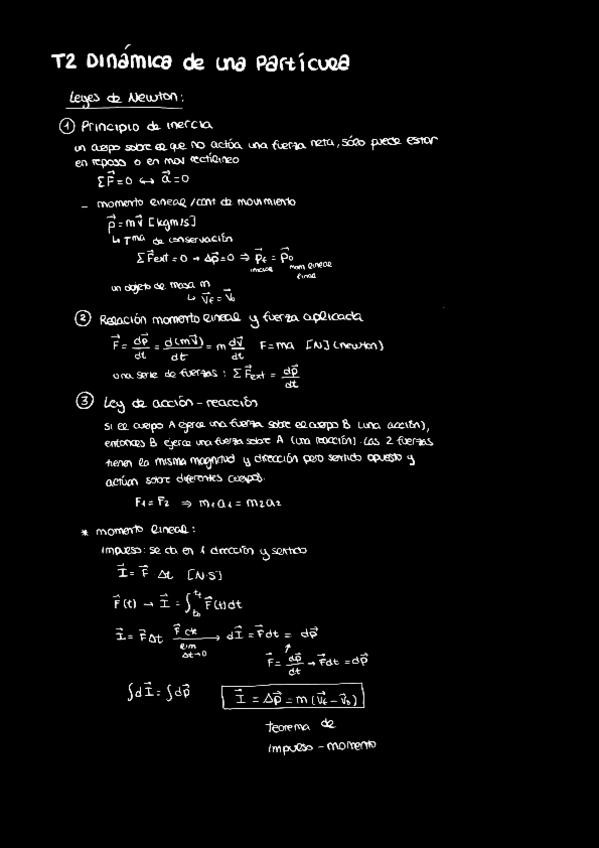 T2 Dinámica de una Partícula
Leyes de Newton:
① Principio de inercia
un cuerpo sobre el que no actúa una fuerza neta, sólo puede estar
en reposo o en mov rectilíneo
ΣF⃗=0 ↔ a⃗=0
- momento lineal /cant de movimiento
p⃗=mv⃗ [kgm/s]
↳ Tma de conservación
ΣF⃗ext=0 → Δp⃗=0 ⇒ p⃗f = p⃗0
mom lineal
final
un objeto de masa m
↳ v⃗f = v⃗0
② Relación momento lineal y fuerza aplicada
F⃗ = dp⃗/dt = d(mv⃗)/dt = m dv⃗/dt F=ma [N] (newton)
una serie de fuerzas: ΣF⃗ext = dp⃗/dt
③ Ley de acción-reacción
si el cuerpo A ejerce una fuerza sobre el cuerpo B (una acción),
entonces B ejerce una fuerza sobre A (una reacción). Las 2 fuerzas
tienen la misma magnitud y dirección pero sentido opuesto y
actúan sobre diferentes cuerpos.
F1=F2 ⇒ m1a1=m2a2
* momento lineal:
impulso: se da en 1 dirección y sentido
I⃗ = F⃗ Δt [N·S]
F⃗(t) → I⃗ = ∫t0tf F⃗(t)dt
I⃗ = F⃗Δt F⃗ cte lim Δt→0 → dI⃗ = F⃗dt = dp⃗
F⃗ = dp⃗/dt → F⃗dt = dp⃗
∫dI⃗ = ∫dp⃗ I⃗ = Δp⃗ = m(v⃗f - v⃗0)
Teorema de
impulso-momento